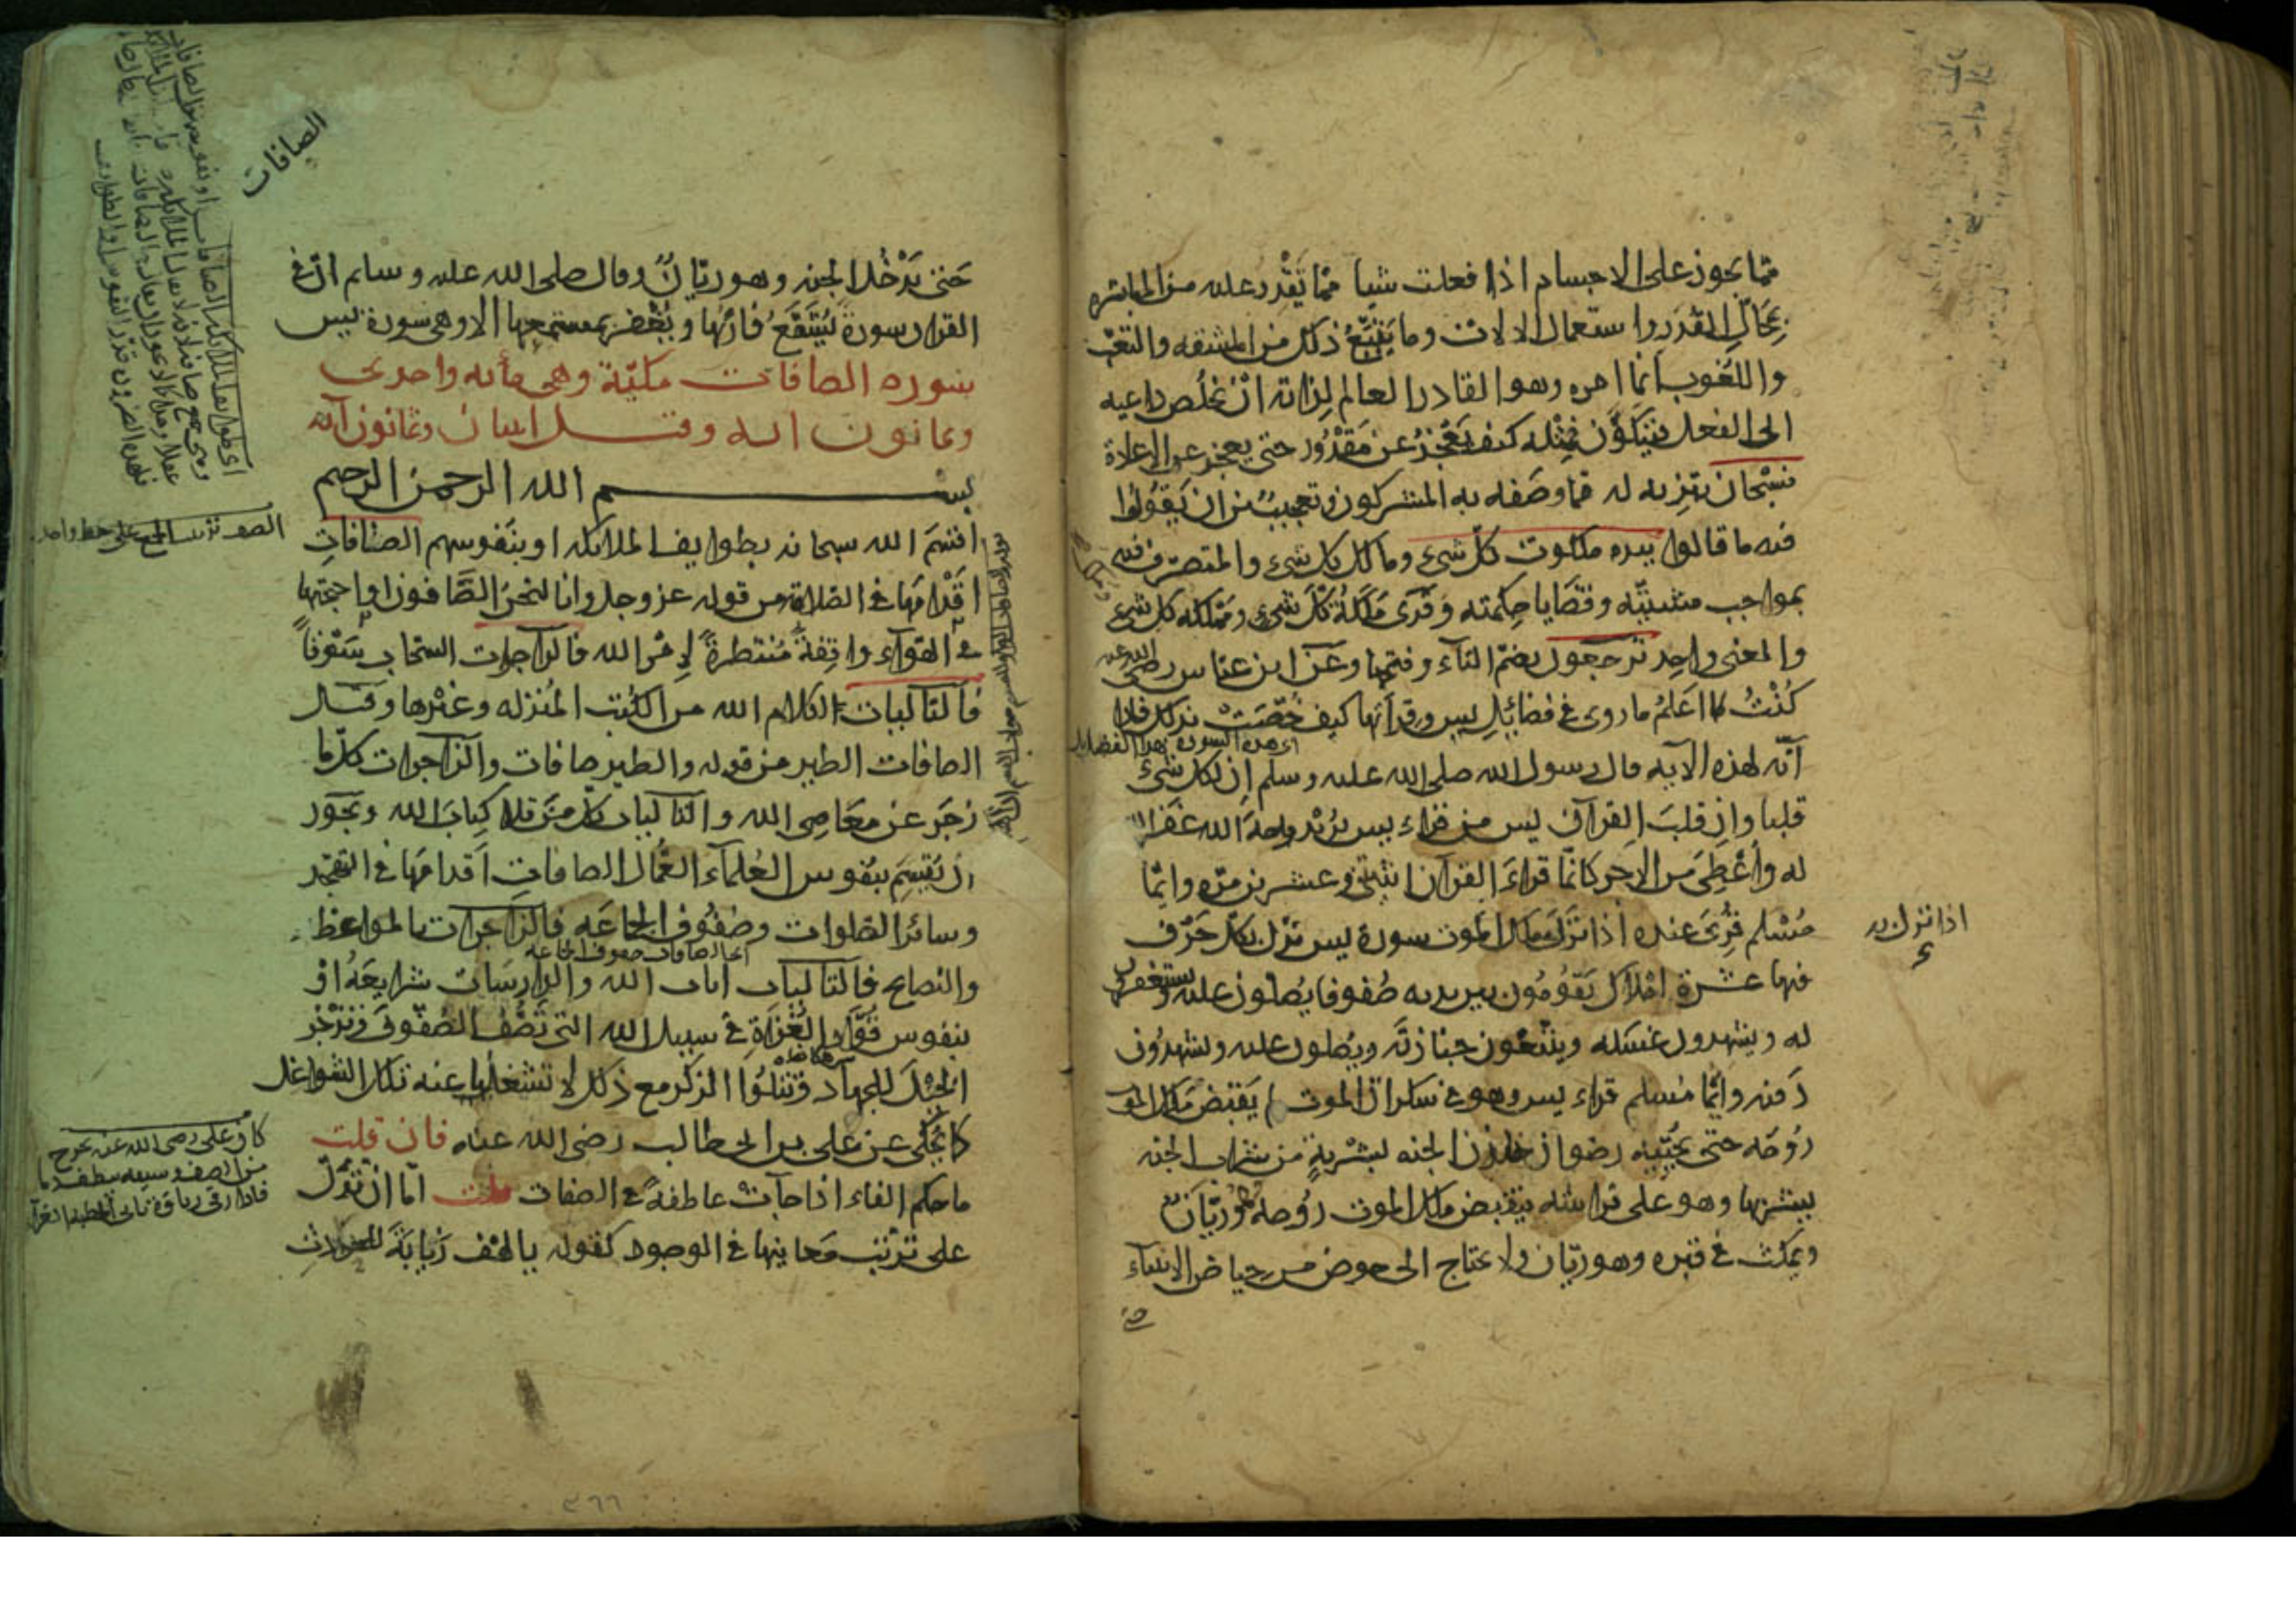 مما يجوز على الاجسام اذا فعلت شيا مما تقدر عليه من المباشرة
بمحال القدر واستعمال الالات وما يتبع ذلك من المشقه والتعب
واللغوب انما امره وهو القادر العالم لذاته ان يخلص داعيه
الى الفعل فيتكون فمثله كيف يعجز عن مقدور حتى يعجز عن الاعادة
فسبحان تنزيه له مما وصفه به المشركون وتعجيب من ان يقولوا
فيه ما قالوا بيده ملكوت كل شيء ومالك كل شيء والمتصرف فيه
بمواجب مشيته وقضايا حكمته وقرى ملكة كل شيء ومملكه كل شيء
والمعنى واحد ترجعون بضم التاء وفتحها وعن ابن عباس رضى الله عنه
كنت لا اعلم ما روى في فضائل يس وقراتها كيف خصت بذلك فاذا
اى هذه السورة بهذا الفضايل
انه لهذه الايه قال رسول الله صلى الله عليه وسلم ان لكل شيء
قلبا وان قلب القران يس من قراء يس يريد بها وجه الله غفر الله
له واعطى من الاجر كانما قراء القران اثنتين وعشرين مرة وايما
مسلم قرى عنده اذا نزل به ملك الموت سورة يس نزل بكل حرف
اذا نزل به
فيها عشرة املاك يقومون بين يديه صفوفا يصلون عليه ويستغفرون
له ويشهدون غسله ويتبعون جنازته ويصلون عليه ويشهدون
دفنه وايما مسلم قراء يس وهو في سكرات الموت لم يقبض ملك الموت
روحه حتى يحييه رضوان خازن الجنه بشربة من شراب الجنه
يشربها وهو على فراشه فيقبض ملك الموت روحه وهو ريان
ويمكث في قبره وهو ريان ولا يحتاج الى حوض من حياض الانبياء
حتى
الصافات
حتى يدخل الجنه وهو ريان وقال صلى الله عليه وسلم ان في
القران سورة يشفع قارئها ويغفر لمستمعها الا وهى سورة يس
سورة الصافات مكية وهى مايه واحدى
وثمانون ايه وقيل اثنان وثمانون آية
بسم الله الرحمن الرحيم
الصف ترتيب الجمع على خط واحد
اقسم الله سبحانه بطوايف الملائكه او بنفوسهم الصافات
اقدامها في الصلاة من قوله عز وجل وانا لنحن الصافون او اجنحتها
في الهواء واقفة منتظرة لامر الله فالزاجرات السحاب سوقا
فالتاليات لكلام الله من الكتب المنزله وغيرها وقيل
الصافات الطير من قوله والطير صافات والزاجرات كل ما
زجر عن معاصى الله والتاليات كل من تلا كتاب الله ويجوز
ان يقسم بنفوس العلماء العمال الصافات اقدامها في التهجد
وسائر الصلوات وصفوف الجماعه فالزاجرات بالمواعظ
والنصايح فالتاليات ايات الله والدارسات شرايعه او
بنفوس قواد الغزاة في سبيل الله التى تصف الصفوف وتزجر
الخيل للجهاد وتتلوا الذكر مع ذلك لا تشغلها عنه تلك الشواغل
كما يحكى عن على بن ابى طالب رضى الله عنه فان قلت
ما حكم الفاء اذا جاءت عاطفة في الصفات قلت اما ان تدل
على ترتب معانيها في الوجود كقوله يا لهف زيابة للحارث
كان على رضى الله عنه يخرج
من الصف وسيفه ينطف دما
٣٦٦